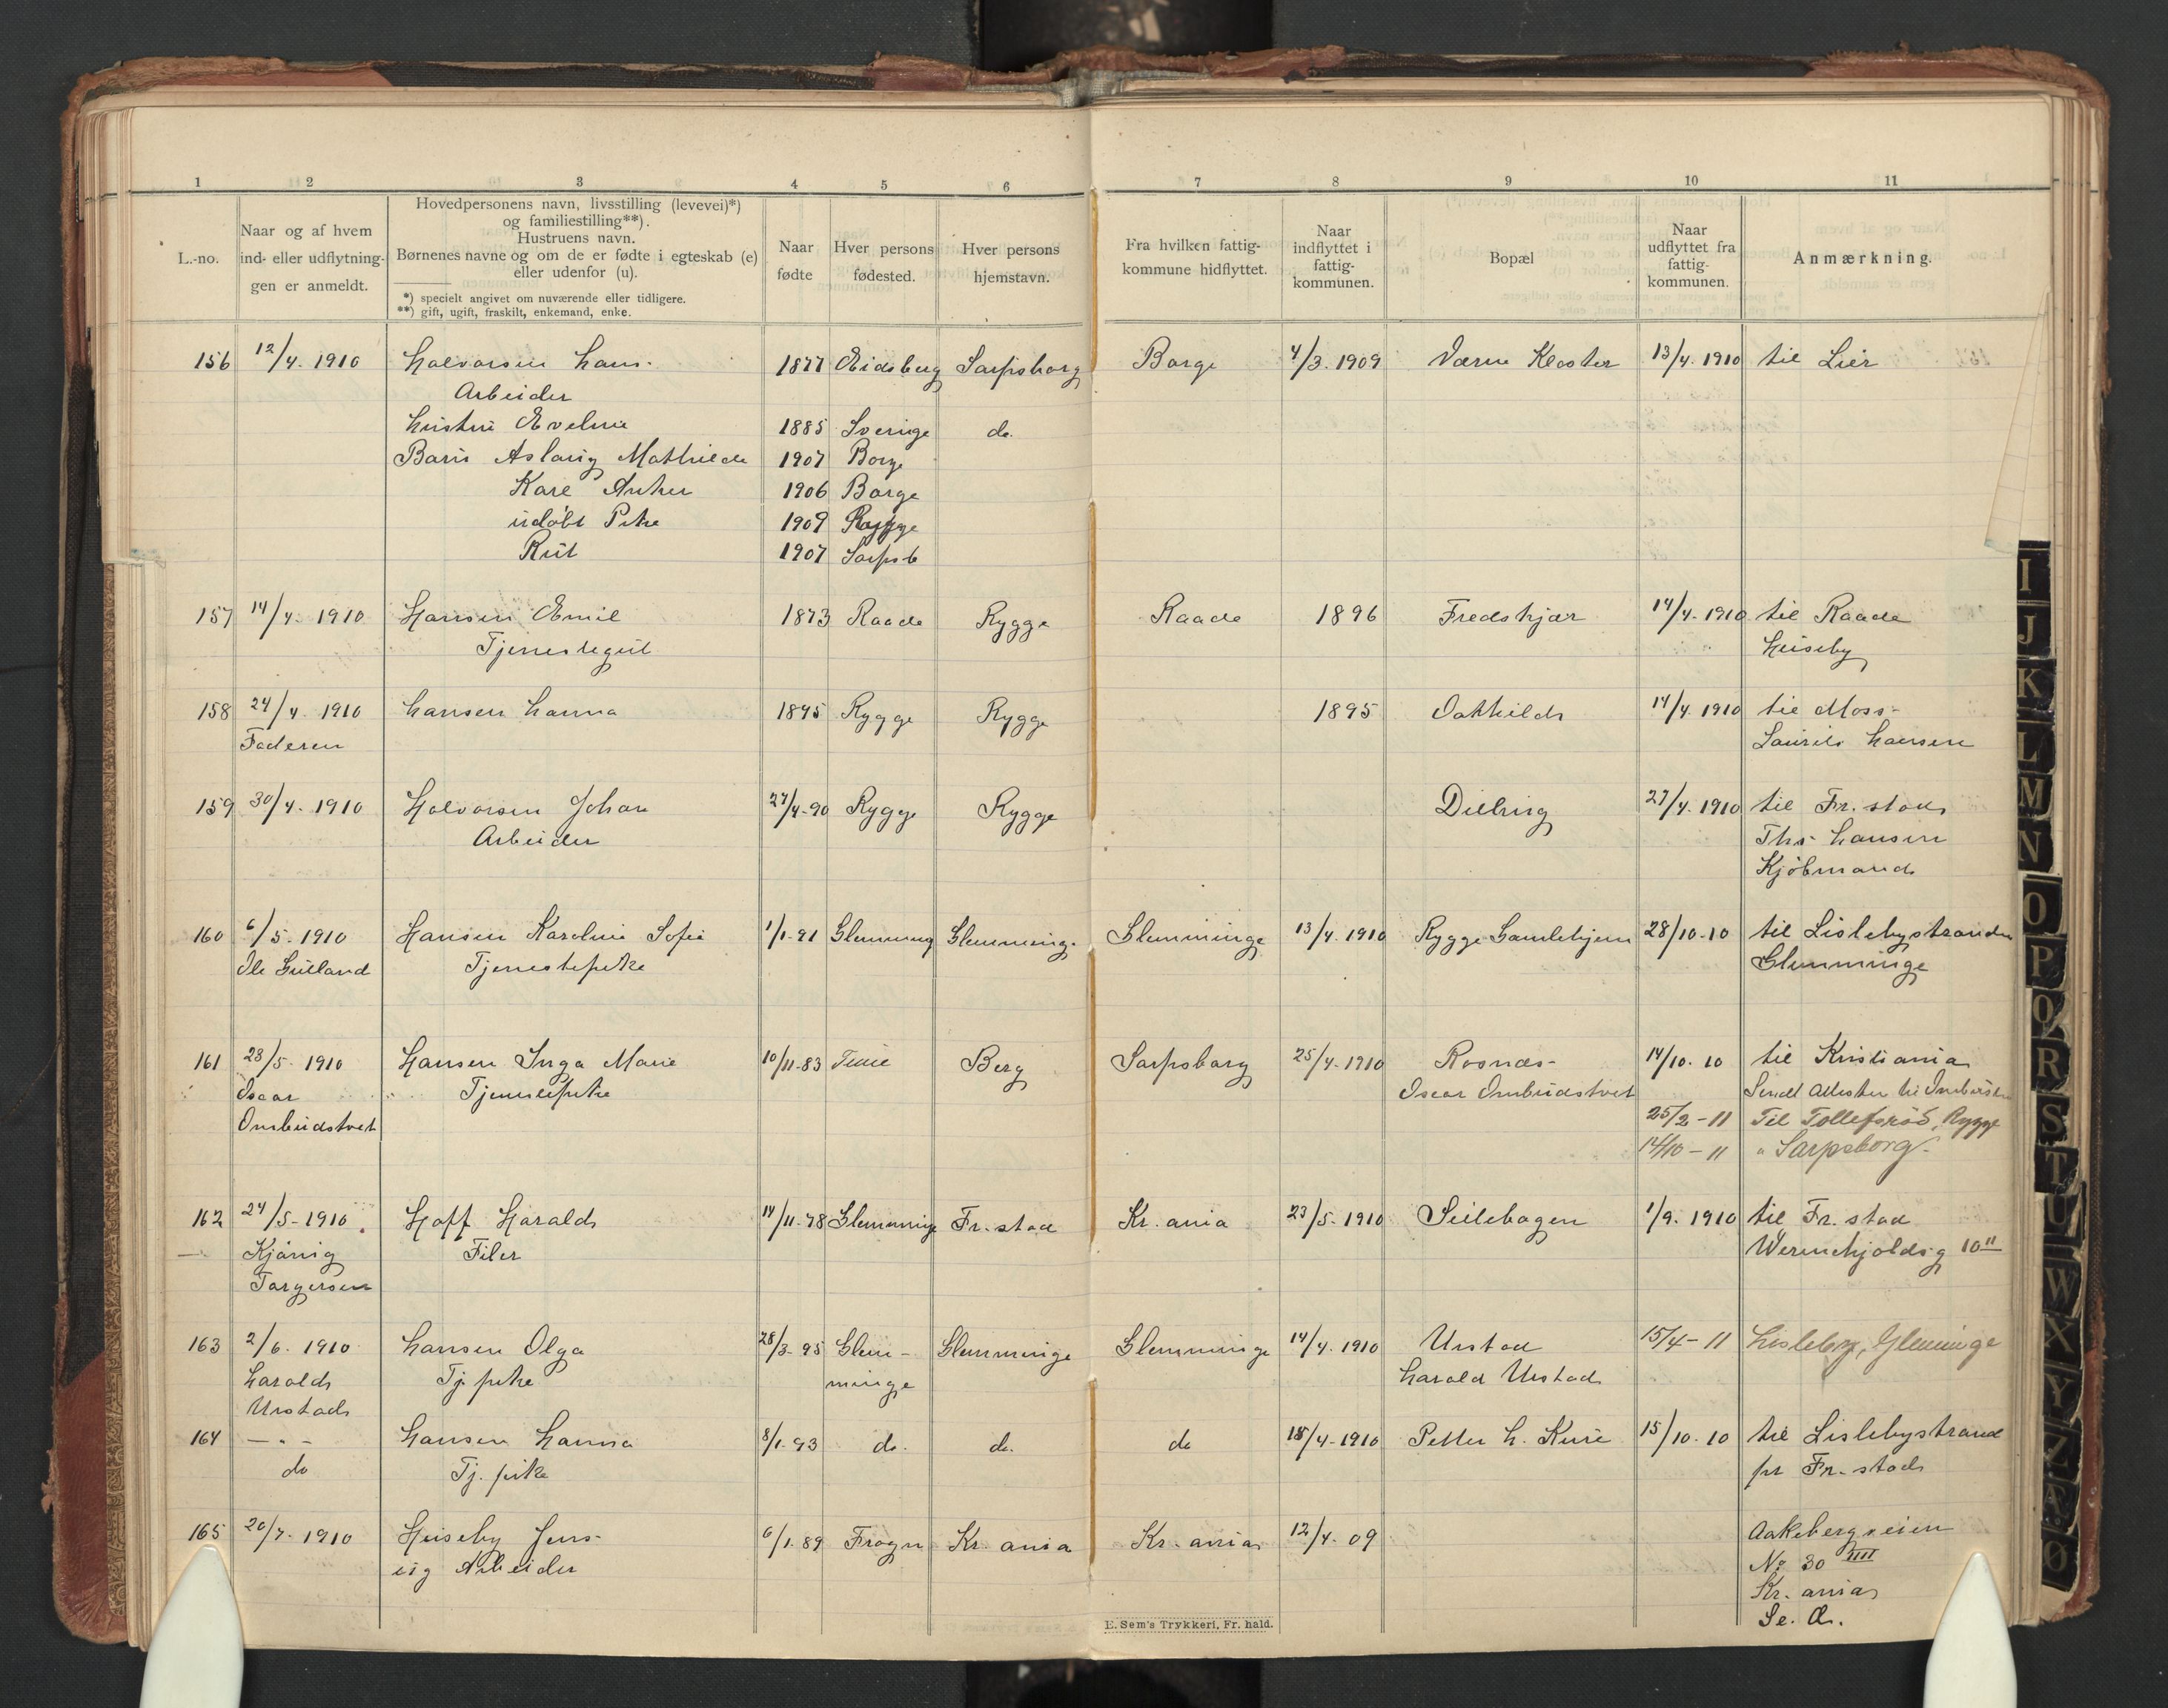 1 2 3 4 5 6 7 8 9 10 11
L.-no.
Naar og af hvem
ind- eller udflytnin-
gen er anmeldt.
Hovedpersonens navn, livsstilling (levevei)*)
og familiestilling**).
Hustruens navn.
Børnenes navne og om de er fødte i egteskab (e)
eller udenfor (u).
*) specielt angivet om nuværende eller tidligere.
**) gift, ugift, fraskilt, enkemand, enke.
Naar
fødte
Hver persons
fødested.
Hver persons
hjemstavn.
Fra hvilken fattig-
kommune hidflyttet.
Naar
indflyttet i
fattig-
kommunen.
Bopæl
Naar
udflyttet fra
fattig-
kommunen.
Anmærkning.
156 12/4. 1910 Halvorsen Hans. 1877 Eidsberg Sarpsborg Borge 4/3. 1909 Værne Kloster 13/4. 1910 til Lier
Arbeider
Hustru Eveline 1885 Sverige do.
Barn Aslaug Mathilde 1907 Borge
Kare Anker 1906 Borge
udøbt Pike 1909 Rygge
Rut 1907 Sarpsb
157 14/4. 1910 Hansen Emil 1873 Raade Rygge Raade 1896 Fredskjær 14/4. 1910 til Raade
Tjenestegut Huseby
158 24/4. 1910 Hansen Hanna 1895 Rygge Rygge 1895 14/4. 1910 til Moss-
Faderen Laurits Hansen
159 30/4. 1910 Halvorsen Johan 27/4-90 Rygge Rygge Dilling 27/4. 1910 til Fr. stad
Arbeider Ths. Hansen
Kjøbmand
160 6/5. 1910 Hansen Karoline Sofie 1/1-91 Glemming Glemminge Glemminge 13/4. 1910 Rygge Gamlehjem 28/10-10 til Lislebystranden
Tjenestepike Glemminge
161 28/5. 1910 Hansen Inga Marie 10/11-83 Tune Berg Sarpsborg 25/4-1910 Rosnæs- 14/10. 10 til Kristiania
Oscar Tjenestepike Oscar Ombudstvet Sendt Attester til
Ombudstvet 25/2-11 Til Tollefsrød, Rygge
14/10-11 " Sarpsborg.
162 24/5-1910 Hoff Harald 14/11-78 Glemminge Fr. stad Kr. ania 23/5-1910 Seilebagen 1/9. 1910 til Fr. stad
Filer 10 II
Torgersen
163 2/6. 1910 Hansen Olga 28/3-95 Glem- Glemminge Glemminge 14/4. 1910 Urstad 15/4-11 Lisleby, Glemminge
Harald Tj. pike minge Harald Urstad
Urstad
164 - " - Hansen Hanna 8/1-93 do. do. do 18/4-1910 Petter H. Kure 15/10. 10 til Lislebystrand
do Tj. pike pr Fr. stad
165 20/7. 1910 Huseby Jens- 6/1-89 Frogn Kr. ania Kr. ania 12/4. 09 Aakebergveien
ug Arbeider No 30 IIII
Kr. ania
Se. Æ.
E. Sem's Trykkeri, Fr. hald.
I
J
K
L
M
N
O
P
Q
R
S
T
U
W
X
Y
Z
Æ
Ø